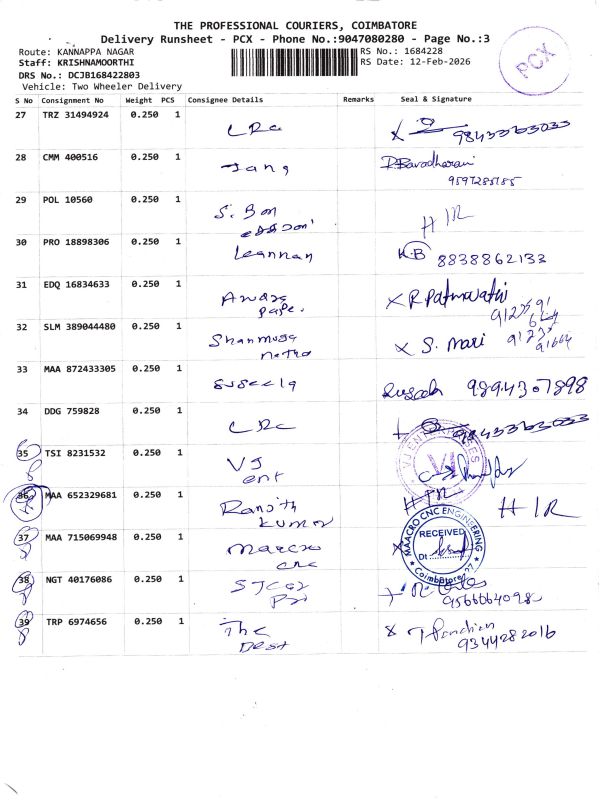 THE PROFESSIONAL COURIERS, COIMBATORE
Delivery Runsheet - PCX - Phone No.:9047080280 - Page No.:3
Route: KANNAPPA NAGAR
RS No.: 1684228
Staff: KRISHNAMOORTHI
RS Date: 12-Feb-2026
DRS No.: DCJB168422803
Vehicle: Two Wheeler Delivery
PCX
S No Consignment No Weight PCS Consignee Details Remarks Seal & Signature
27 TRZ 31494924 0.250 1 CRC 9843363033
28 CMM 400516 0.250 1 P.Baradharani
9597285185
29 POL 10560 0.250 1 S. Bon HIR
30 PRO 18898306 0.250 1 Leannan K.B 8838862133
31 EDQ 16834633 0.250 1 X R Patmavathi
Pape.
32 SLM 389044480 0.250 1 Shanmuga X S. Mari
33 MAA 872433305 0.250 1 Suseela 9894307898
34 DDG 759828 0.250 1 CRC 9843363033
35 TSI 8231532 0.250 1 VJ
ent
VJ ENTERPRISES
VJ
36 MAA 652329681 0.250 1 Ranjith HIR HIR
kumar
37 MAA 715069948 0.250 1 Macro
cnc
MAACRO CNC ENGINEERING
RECEIVED
Dt
Coimbatore
38 NGT 40176086 0.250 1
9566064098
39 TRP 6974656 0.250 1 The X T Pandian
Dest 9344282016